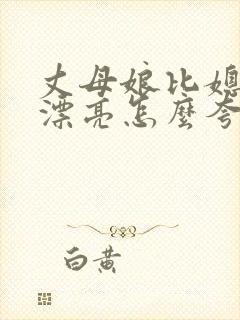 丈母娘比媳
漂亮怎麼夸
白黄